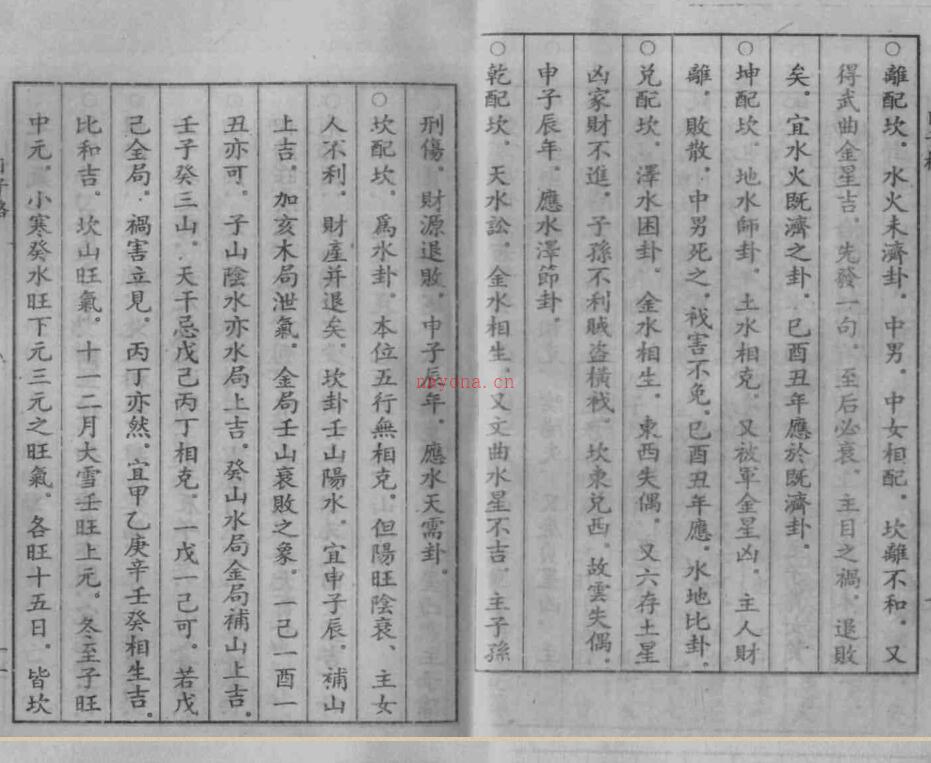 ○離配坎。水火未濟卦。中男。中女相配。坎離不和。又
得武曲金星吉。先發一句。至后必衰。主目之禍。退敗
矣。宜水火既濟之卦。巳酉丑年應於既濟卦。
○坤配坎。地水師卦。土水相克。又被軍金星凶。主人財
離。敗散。中男死之。禍害不免。巳酉丑年應。水地比卦。
○兌配坎。澤水困卦。金水相生。東西失偶。又六存土星
凶家財不進。子孫不利賊盗橫禍。坎東兌西。故雲失偶。
申子辰年。應水澤節卦。
○乾配坎。天水訟。金水相生。又文曲水星不吉。主子孫
刑傷。財源退敗。申子辰年。應水天需卦。
○坎配坎。為水卦。本位五行無相克。但陽旺陰衰、主女
人不利。財產并退矣。坎卦壬山陽水。宜申子辰。補山
上吉。加亥木局泄氣。金局壬山衰敗之象。一己一酉一
丑亦可。子山陰水亦水局上吉。癸山水局金局補山上吉。
壬子癸三山。天干忌戊己丙丁相克。一戊一己可。若戊
己全局。禍害立見。丙丁亦然。宜甲乙庚辛壬癸相生吉。
比和吉。坎山旺氣。十一二月大雪壬旺上元。冬至子旺
中元。小寒癸水旺下元三元之旺氣。各旺十五日。皆坎
nayona.cn